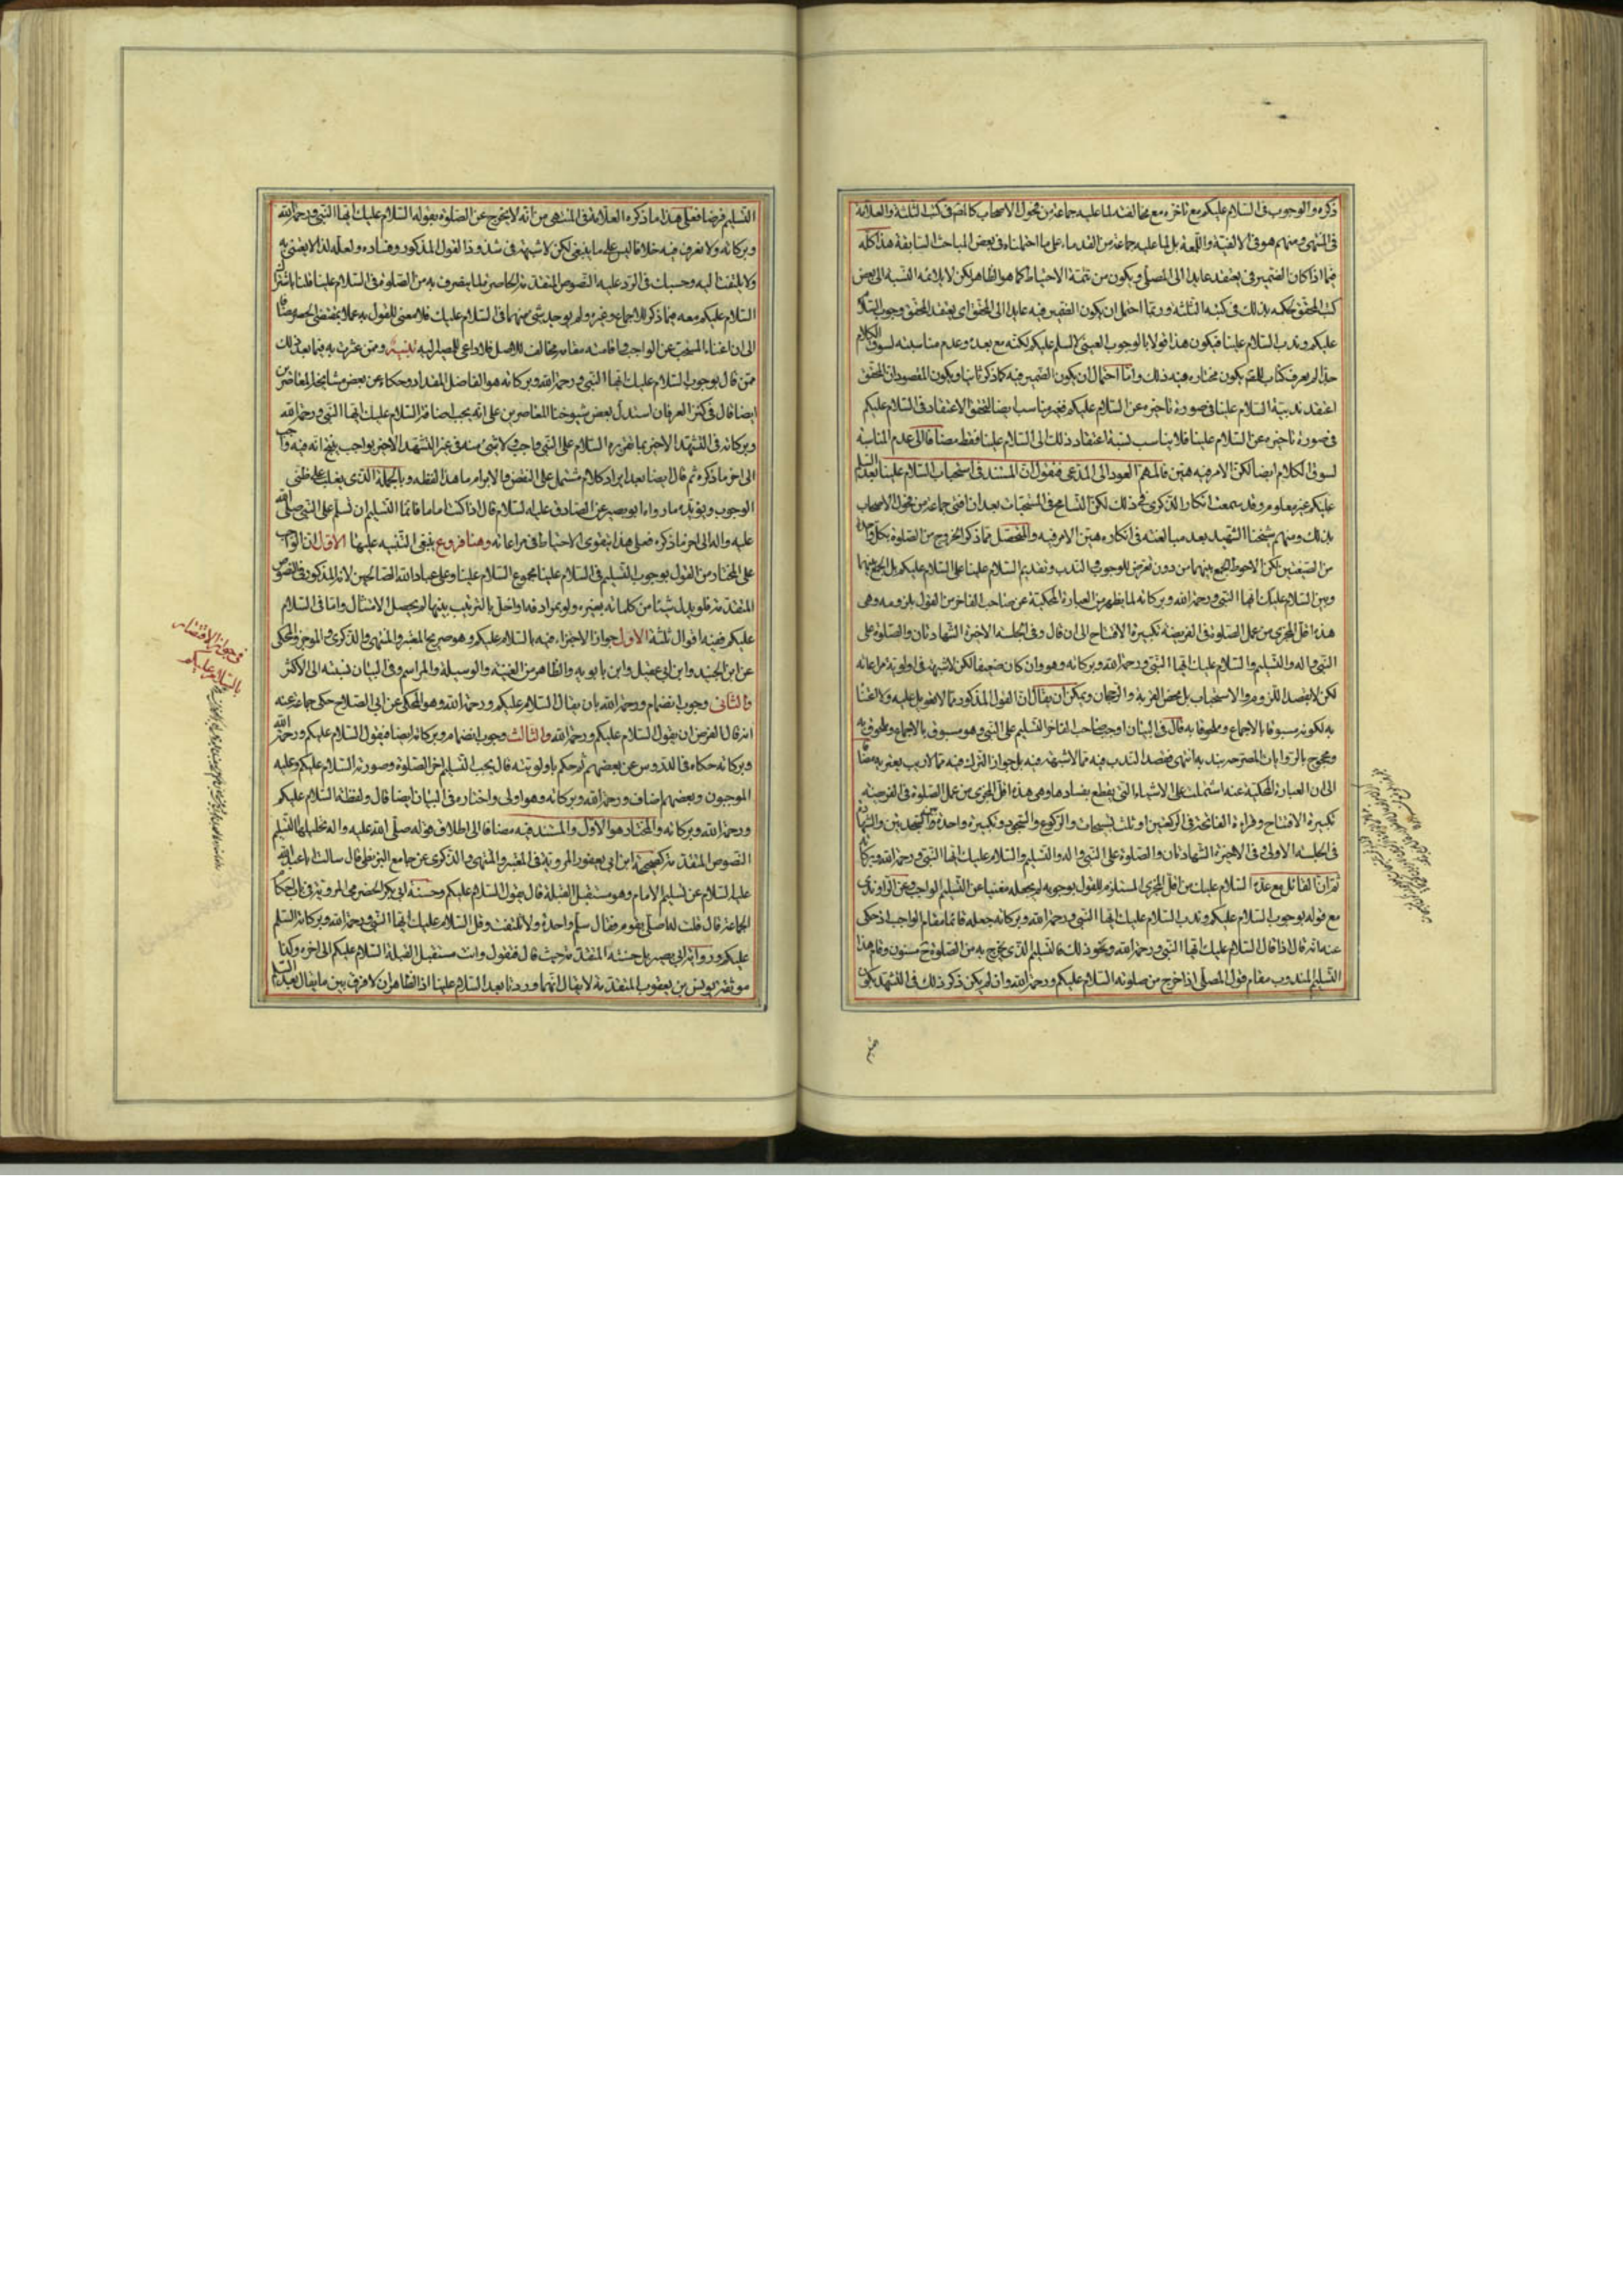 ذكره والوجوب فى السلام عليكم مع تاخره مع مخالفته لما عليه جماعة من فحول الاصحاب كالمص فى كتبه الثلثة والعلامة
فى المنتهى ومنهم هو فى الالفية واللمعة بل لما عليه جماعة من القدماء على ما احتملناه فى بعض المباحث السابقة هذا كله
فيما اذا كان الضمير فى يعتقد عايدا الى المصلى ويكون من تتمة الاحتياط كما هو الظاهر لكن لا يلائمه النسبة الى بعض
كتب المحقق لحكمه بذلك فى كتبه الثلثة وربما احتمل ان يكون الضمير فيه عايدا الى المحقق اى يعتقد المحقق وجوب السلام
عليكم وندب السلام علينا فيكون هذا قولا بالوجوب العينى للسلم عليكم لكنه مع بعده وعدم مناسبته لسوق الكلام
جدا لم يعرف كتاب للمص يكون مختاره فيه ذلك وامّا احتمال ان يكون الضمير فيه كما ذكر ثانيا ويكون المقصود ان المحقق
اعتقد ندبية السلام علينا فى صورة تاخيره عن السلام عليكم فهو مناسب ايضا لتحقق الاعتقاد فى السلام عليكم
فى صورة تاخيره عن السلام علينا فلا يناسب نسبة اعتقاد ذلك الى السلام علينا فقط مضافا الى عدم المناسبة
لسوق الكلام ايضا لكن الامر فيه هين فالمهم العود الى المدعى فنقول ان المستند فى استحباب السلام علينا بعد السلام
عليكم غير معلوم وقد سمعت انكار الذكرى فى ذلك لكن التسامح فى المستحبات بعد ان افتى جماعة من فحول الاصحاب
بذلك ومنهم شيخنا الشهيد بعد مبالغته فى انكاره هين الامر فيه والمتحصل مما ذكر الخروج من الصلوة بكل واحدة
من الصيغتين لكن الاحوط الجمع بينهما من دون تعرض للوجوب والندب وتقديم السلام علينا على السلام عليكم بل الجمع بينهما
وبين السلام عليك ايها النبى ورحمة الله وبركاته لما يظهر من العبارة المحكية عن صاحب الفاخر من القول بلزومه وهى
هذه اقل المجزى من عمل الصلوة فى الفريضة تكبيرة الافتتاح الى ان قال وفى الجلسة الاخيرة الشهادتان والصلوة على
النبى واله والتسليم والسلام عليك ايها النبى ورحمة الله وبركاته وهو وان كان ضعيفا لكن لا شبهة فى اولوية مراعاته
لكن لا بقصد اللزوم والاستحباب بل محض القربة والرجحان ويمكن ان يقال ان القول المذكور مما لا تعويل عليه ولا اعتناء
به لكونه مسبوقا بالاجماع وملحوقا به قال فى البيان اوجب صاحب الفاخر التسليم على النبى وهو مسبوق بالاجماع وملحوق به
ومحجوج بالروايات المصرحة بندبه انتهى فقصد الندب فيه مما لا شبهة فيه بل جواز الترك فيه مما لا ريب يعتريه مضافا
الى ان العبارة المحكية عنه اشتملت على الاشياء التى يقطع بفسادها وهى هذه اقل المجزى من عمل الصلوة فى الفريضة
تكبيرة الافتتاح وقراءة الفاتحة فى الركعتين او ثلث تسبيحات والركوع والسجود وتكبيرة واحدة بين السجدتين والشهادة
فى الجلسة الاولى وفى الاخيرة الشهادتان والصلوة على النبى واله والتسليم والسلام عليك ايها النبى ورحمة الله وبركاته
ثم ان القائل مع عده السلام عليك من اقل المجزى المستلزم للقول بوجوبه لم يجعله مغنيا عن التسليم الواجب وعن الراوندى
مع قوله بوجوب السلام عليكم وندب السلام عليك ايها النبى ورحمة الله وبركاته جعله قائما مقام الواجب اذ حكى
عنه انه قال اذا قال السلام عليك ايها النبى ورحمة الله ونحو ذلك فالتسليم الذى يخرج به من الصلوة ح مسنون وقام هذا
التسليم المندوب مقام قول المصلى اذا خرج من صلوته السلام عليكم ورحمة الله وان لم يكن ذكر ذلك فى التشهد يكون
التسليم فرضا فعلى هذا ما ذكره العلامة فى المنتهى من انه لا يخرج عن الصلوة بقوله السلام عليك ايها النبى ورحمة الله
وبركاته ولا نعرف فيه خلافا ليس على ما ينبغى لكن لا شبهة فى شذوذ القول المذكور وفساده ولعله لذا لا يعتنى به
ولا يلتفت اليه وحسبك فى الرد عليه النصوص المتقدمة الحاصرة لما ينصرف به من الصلوة فى السلام علينا قلنا باشتراك
السلام عليكم معه فيما ذكر للاجماع وغيره ولم يوجد شئ منهما فى السلام عليك فلا معنى للقول به عملا بمقتضى الحصر مضافا
الى ان اغناء المستحب عن الواجب واقامته مقامه مخالف للاصل فلا داعى للمصير اليه تنبيه وممن عثرت به فيما بعد ذلك
ممن قال بوجوب السلام عليك ايها النبى ورحمة الله وبركاته هو الفاضل المقداد وحكاه عن بعض مشايخه المعاصرين
ايضا قال فى كنز العرفان استدل بعض شيوخنا المعاصرين على انه يجب اضافة السلام عليك ايها النبى ورحمة الله
وبركاته فى التشهد الاخير بما تقريره السلام على النبى واجب ولا شئ منه فى غير التشهد الاخير بواجب ينتج انه فيه واجب
الى اخر ما ذكره ثم قال ايضا بعد ايراد كلام مشتمل على النقض والابرام ما هذا لفظه وبالجملة الذى يغلب على ظنى
الوجوب ويؤيده ما رواه ابو بصير عن الصادق عليه السلام قال اذا كنت اماما فانما التسليم ان تسلم على النبى صلى الله
عليه واله الى اخر ما ذكره فعلى هذا يتقوى الاحتياط فى مراعاته وهنا فروع ينبغى التنبيه عليها الاول ان الواجب
على المختار من القول بوجوب التسليم فى السلام علينا مجموع السلام علينا وعلى عباد الله الصالحين لانه المذكور فى النصوص
المتقدمة فلو بدل شيئا من كلماته بغيره ولو بمرادفه او اخل بالترتيب بينها لم يحصل الامتثال وامّا فى السلام
عليكم ففيه اقوال ثلثة الاول جواز الاجتزاء فيه بالسلام عليكم وهو صريح المعتبر والمنتهى والذكرى والموجز والمحكى
عن ابن الجنيد وابن ابى عقيل وابن بابويه والظاهر من الغنية والوسيلة والمراسم وفى البيان نسبته الى الاكثر
والثانى وجوب انضمام ورحمة الله بان يقال السلام عليكم ورحمة الله وهو المحكى عن ابى الصلاح حكى جماعة عنه
انه قال الفرض ان يقول السلام عليكم ورحمة الله والثالث وجوب انضمام وبركاته ايضا فيقول السلام عليكم ورحمة الله
وبركاته حكاه فى الدروس عن بعضهم ثم حكم باولويته قال يجب التسليم اخر الصلوة وصورته السلام عليكم وعليه
الموجبون وبعضهم اضاف ورحمة الله وبركاته وهو اولى واختاره فى البيان ايضا قال ولفظه السلام عليكم
ورحمة الله وبركاته والمختار هو الاول والمستند فيه مضافا الى اطلاق قوله صلى الله عليه واله تحليلها التسليم
النصوص المتقدمة كصحيحة ابن ابى يعفور المروية فى المعتبر والمنتهى والذكرى عن جامع البزنطى قال سالت ابا عبد الله
عليه السلام عن تسليم الامام وهو مستقبل القبلة قال يقول السلام عليكم وحسنة ابى بكر الحضرمى المروية فى باب احكام
الجماعة قال قلت له اصلى بقوم فقال سلم واحدة ولا تلتفت وقل السلام عليك ايها النبى ورحمة الله وبركاته السلم
عليكم ورواية ابى بصير بل حسنته المتقدمة حيث قال فتقول وانت مستقبل القبلة السلام عليكم الى اخره وكذا
موثقة يونس بن يعقوب المتقدمة لا يقال انهما وردتا بعد السلام علينا اذ الظاهر ان لا فرق بين ما يقال بعد السلام
فى جواز الاقتصار
بالسلام عليكم